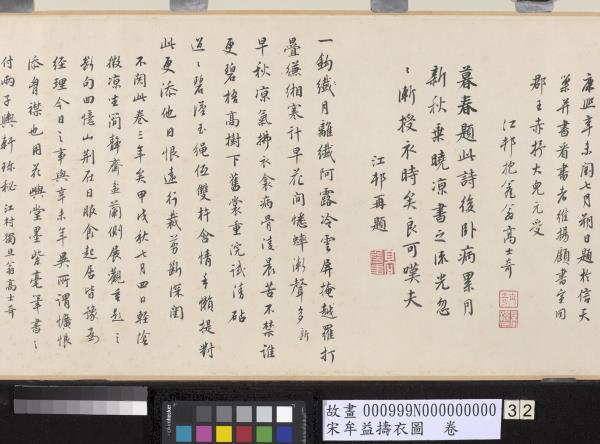 康熙辛未閏七月朔日題於信天
巢并書者維揚顧書宣同
郡王赤抒大兒元受
江邨抱瓮翁高士奇
暮春題此詩後臥病累月
新秋乘曉凉書之流光忽
〻漸授衣時矣良可嘆夫
江邨再題
一鈎纖月離纖阿露冷雲屏掩越羅打
疊縑緗寒計早花間蟋蟀漸聲多 新
早秋凉氣拂衣衾病骨清晨苦不禁誰
更碧梧高樹下舊裳重浣試清砧
迢〻碧溼玉繩低雙杵含情手懶提對
此更添他日恨遠行裁剪斷深閨
不閱此卷三年矣甲戌秋七月四日輕陰
微凉坐簡靜齋盆蘭側展觀重題三
斷句回憶山荆在日服食起居皆操舟
經理今日之事與辛未年異所謂懷恨
添胷襟也用花嶼堂墨紫毫筆書之
付兩子輿軒珍秘 江村獨旦翁高士奇
故畫 000999N000000000
宋牟益擣衣圖 卷
32